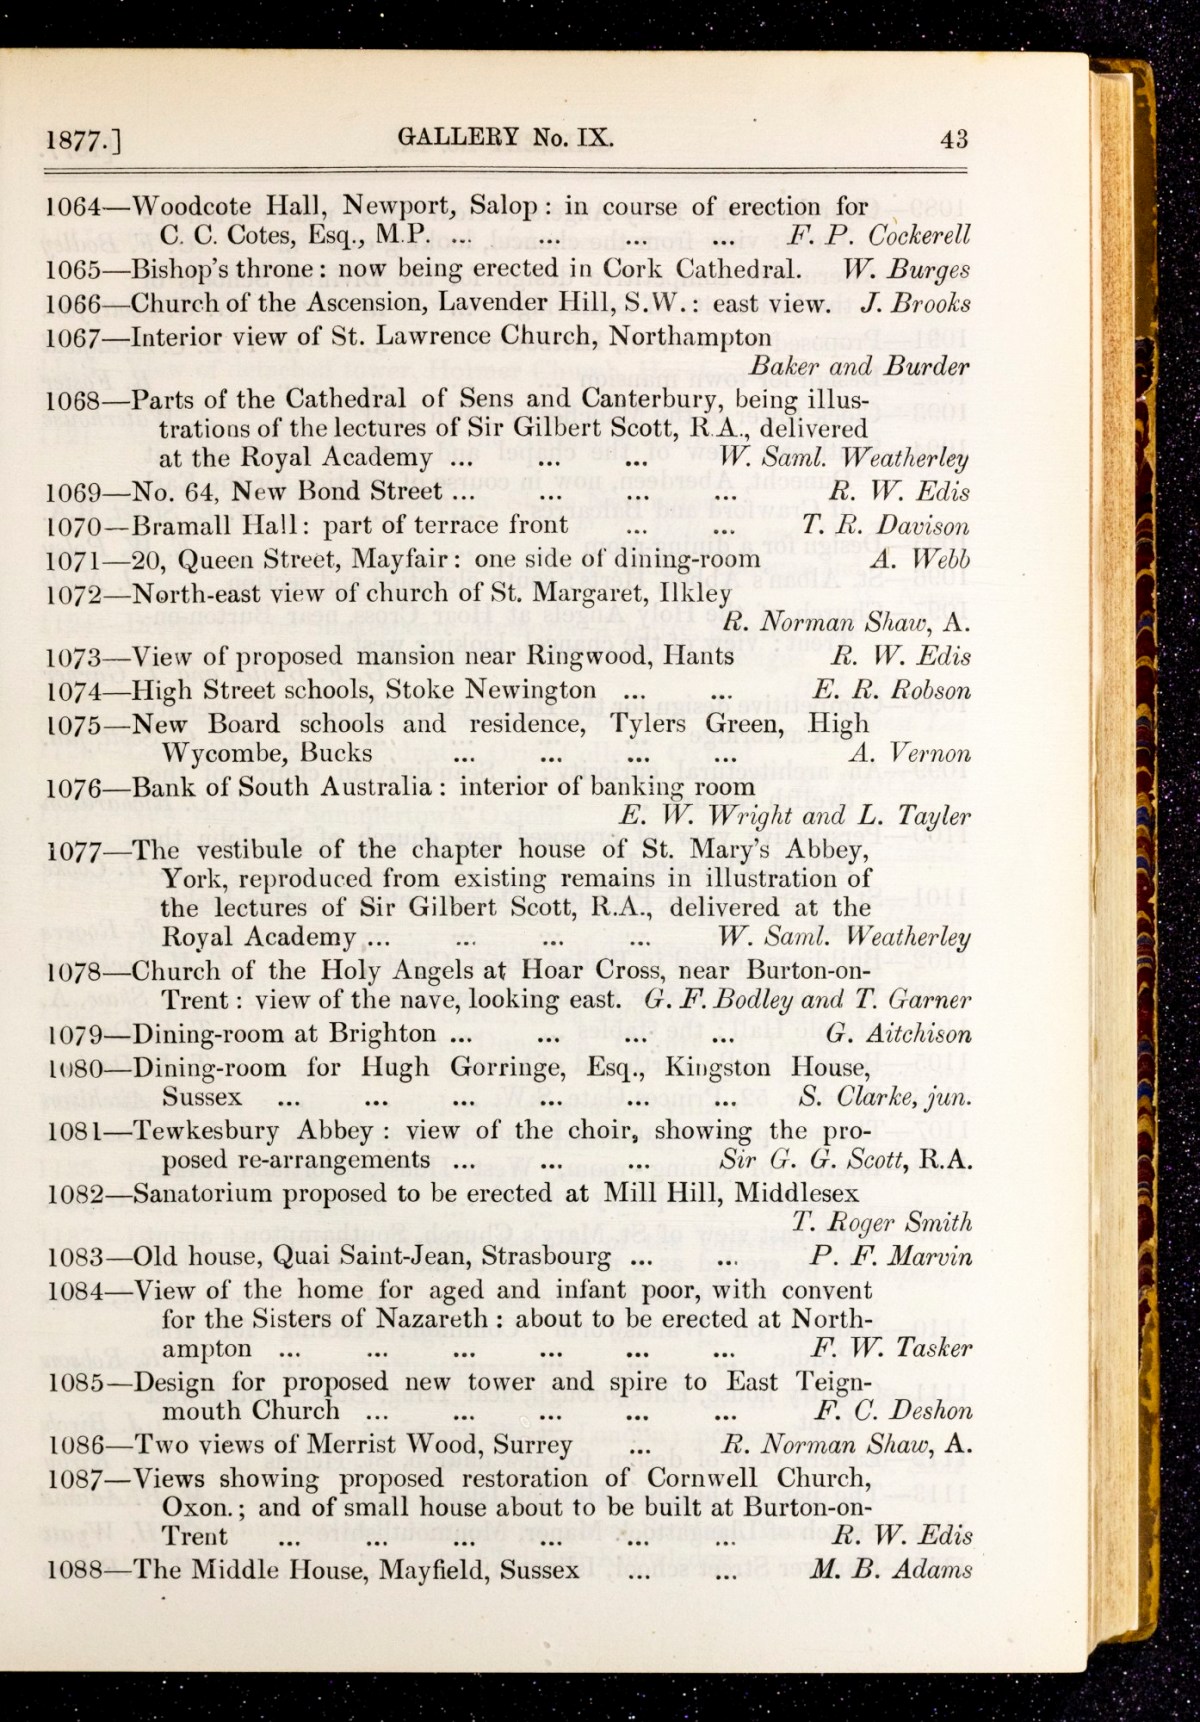 1877.] GALLERY No. IX. 43
1064—Woodcote Hall, Newport, Salop : in course of erection for
C. C. Cotes, Esq., M.P. ... ... ... ... F. P. Cockerell
1065—Bishop's throne : now being erected in Cork Cathedral. W. Burges
1066—Church of the Ascension, Lavender Hill, S.W. : east view. J. Brooks
1067—Interior view of St. Lawrence Church, Northampton
Baker and Burder
1068—Parts of the Cathedral of Sens and Canterbury, being illus-
trations of the lectures of Sir Gilbert Scott, R.A., delivered
at the Royal Academy ... ... ... W. Saml. Weatherley
1069—No. 64, New Bond Street ... ... ... ... R. W. Edis
1070—Bramall Hall : part of terrace front ... ... T. R. Davison
1071—20, Queen Street, Mayfair : one side of dining-room A. Webb
1072—North-east view of church of St. Margaret, Ilkley
R. Norman Shaw, A.
1073—View of proposed mansion near Ringwood, Hants R. W. Edis
1074—High Street schools, Stoke Newington ... ... E. R. Robson
1075—New Board schools and residence, Tylers Green, High
Wycombe, Bucks ... ... ... ... A. Vernon
1076—Bank of South Australia : interior of banking room
E. W. Wright and L. Tayler
1077—The vestibule of the chapter house of St. Mary's Abbey,
York, reproduced from existing remains in illustration of
the lectures of Sir Gilbert Scott, R.A., delivered at the
Royal Academy ... ... ... ... W. Saml. Weatherley
1078—Church of the Holy Angels at Hoar Cross, near Burton-on-
Trent : view of the nave, looking east. G. F. Bodley and T. Garner
1079—Dining-room at Brighton ... ... ... ... G. Aitchison
1080—Dining-room for Hugh Gorringe, Esq., Kingston House,
Sussex ... ... ... ... ... ... S. Clarke, jun.
1081—Tewkesbury Abbey : view of the choir, showing the pro-
posed re-arrangements ... ... ... Sir G. G. Scott, R.A.
1082—Sanatorium proposed to be erected at Mill Hill, Middlesex
T. Roger Smith
1083—Old house, Quai Saint-Jean, Strasbourg ... ... P. F. Marvin
1084—View of the home for aged and infant poor, with convent
for the Sisters of Nazareth : about to be erected at North-
ampton ... ... ... ... ... ... F. W. Tasker
1085—Design for proposed new tower and spire to East Teign-
mouth Church ... ... ... ... ... F. C. Deshon
1086—Two views of Merrist Wood, Surrey ... R. Norman Shaw, A.
1087—Views showing proposed restoration of Cornwell Church,
Oxon. ; and of small house about to be built at Burton-on-
Trent ... ... ... ... ... ... R. W. Edis
1088—The Middle House, Mayfield, Sussex ... ... M. B. Adams